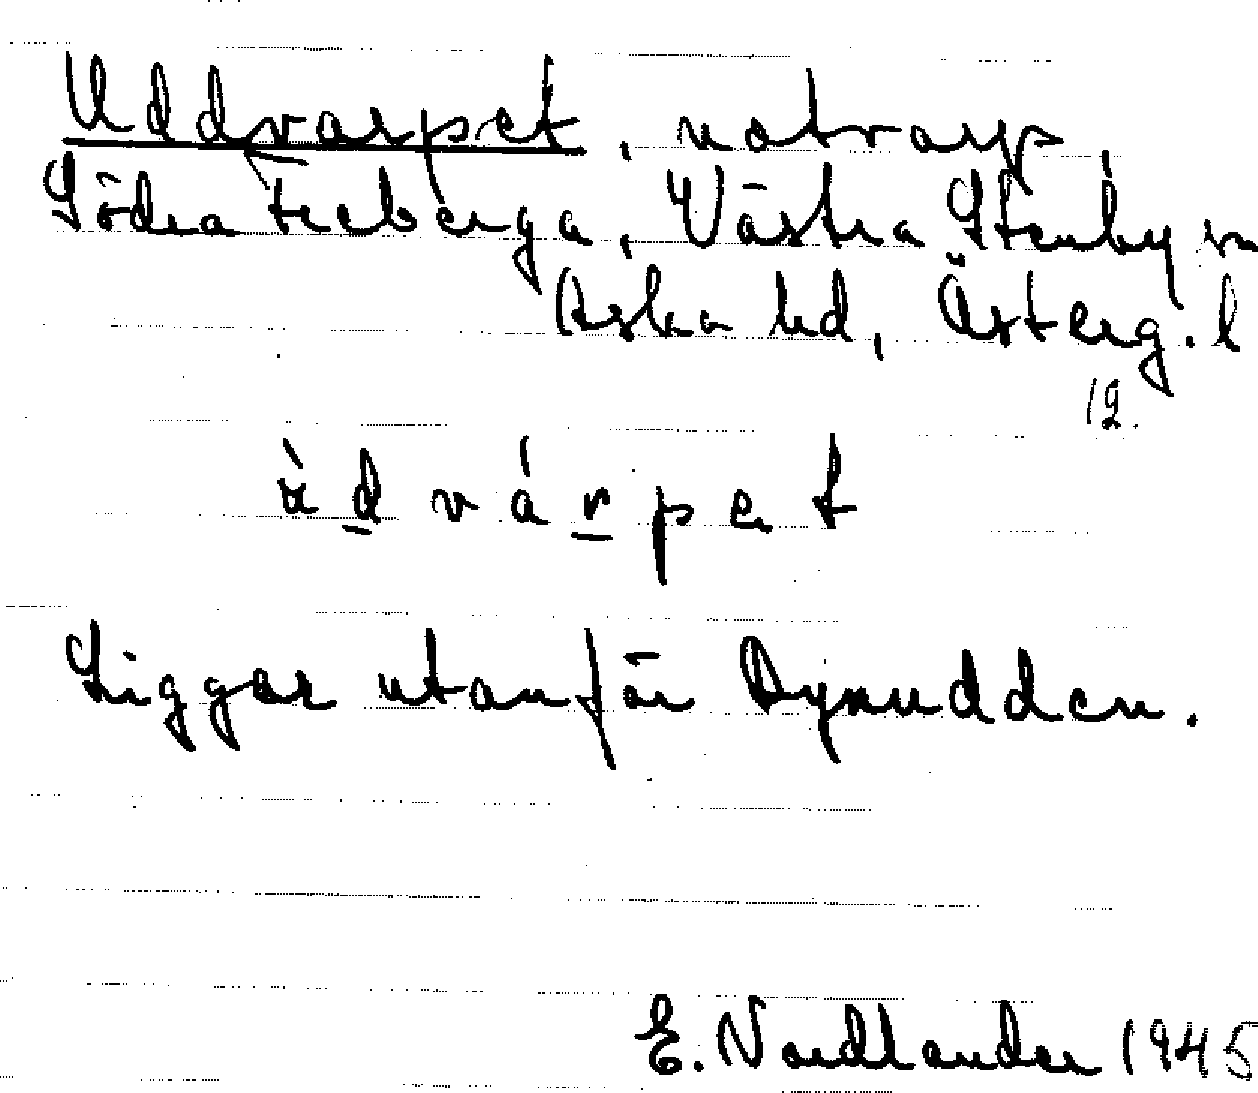 Uddvarpet, notvarp,
Södra Freberga, Västra Stenby sn
Aska hd, Österg. l
12.
ùdvárpet
Ligger utanför Dynudden.
E. Nordlander 1945